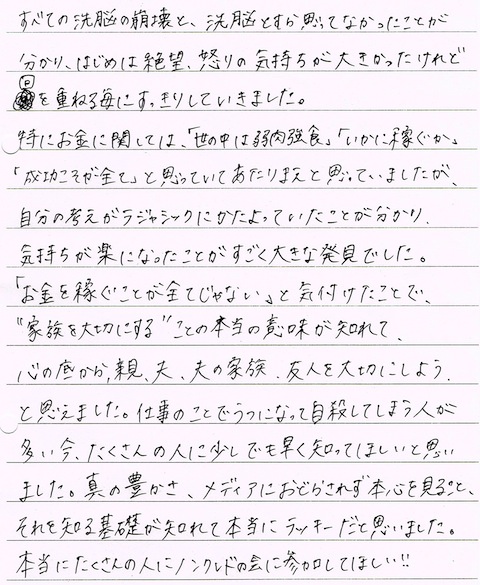 すべての洗脳の崩壊と、洗脳とすら思ってなかったことが
分かり、はじめは絶望、怒りの気持ちが大きかったけれど
回を重ねる毎にすっきりしていきました。
特にお金に関しては、「世の中は弱肉強食」「いかに稼ぐか」
「成功こそが全て」と思っていてあたりまえと思っていましたが、
自分の考えがラジャシックにかたよっていたことが分かり、
気持ちが楽になったことがすごく大きな発見でした。
「お金を稼ぐことが全てじゃない」と気付けたことで、
"家族を大切にする"ことの本当の意味が知れて、
心の底から、親、夫、夫の家族、友人を大切にしよう、
と思えました。仕事のことでうつになって自殺してしまう人が
多い今、たくさんの人に少しでも早く知ってほしいと思い
ました。真の豊かさ、メディアにおどらされず本心を見ること、
それを知る基礎が知れて本当にラッキーだと思いました。
本当にたくさんの人にノンクレドの会に参加してほしい!!